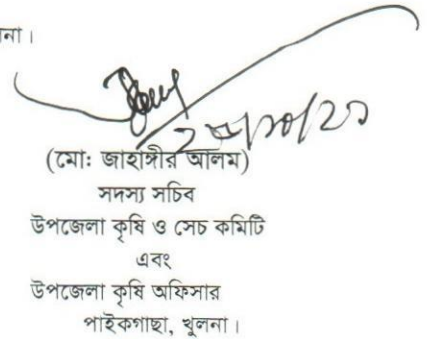 না।
(মোঃ জাহাঙ্গীর আলম)
সদস্য সচিব
উপজেলা কৃষি ও সেচ কমিটি
এবং
উপজেলা কৃষি অফিসার
পাইকগাছা, খুলনা।